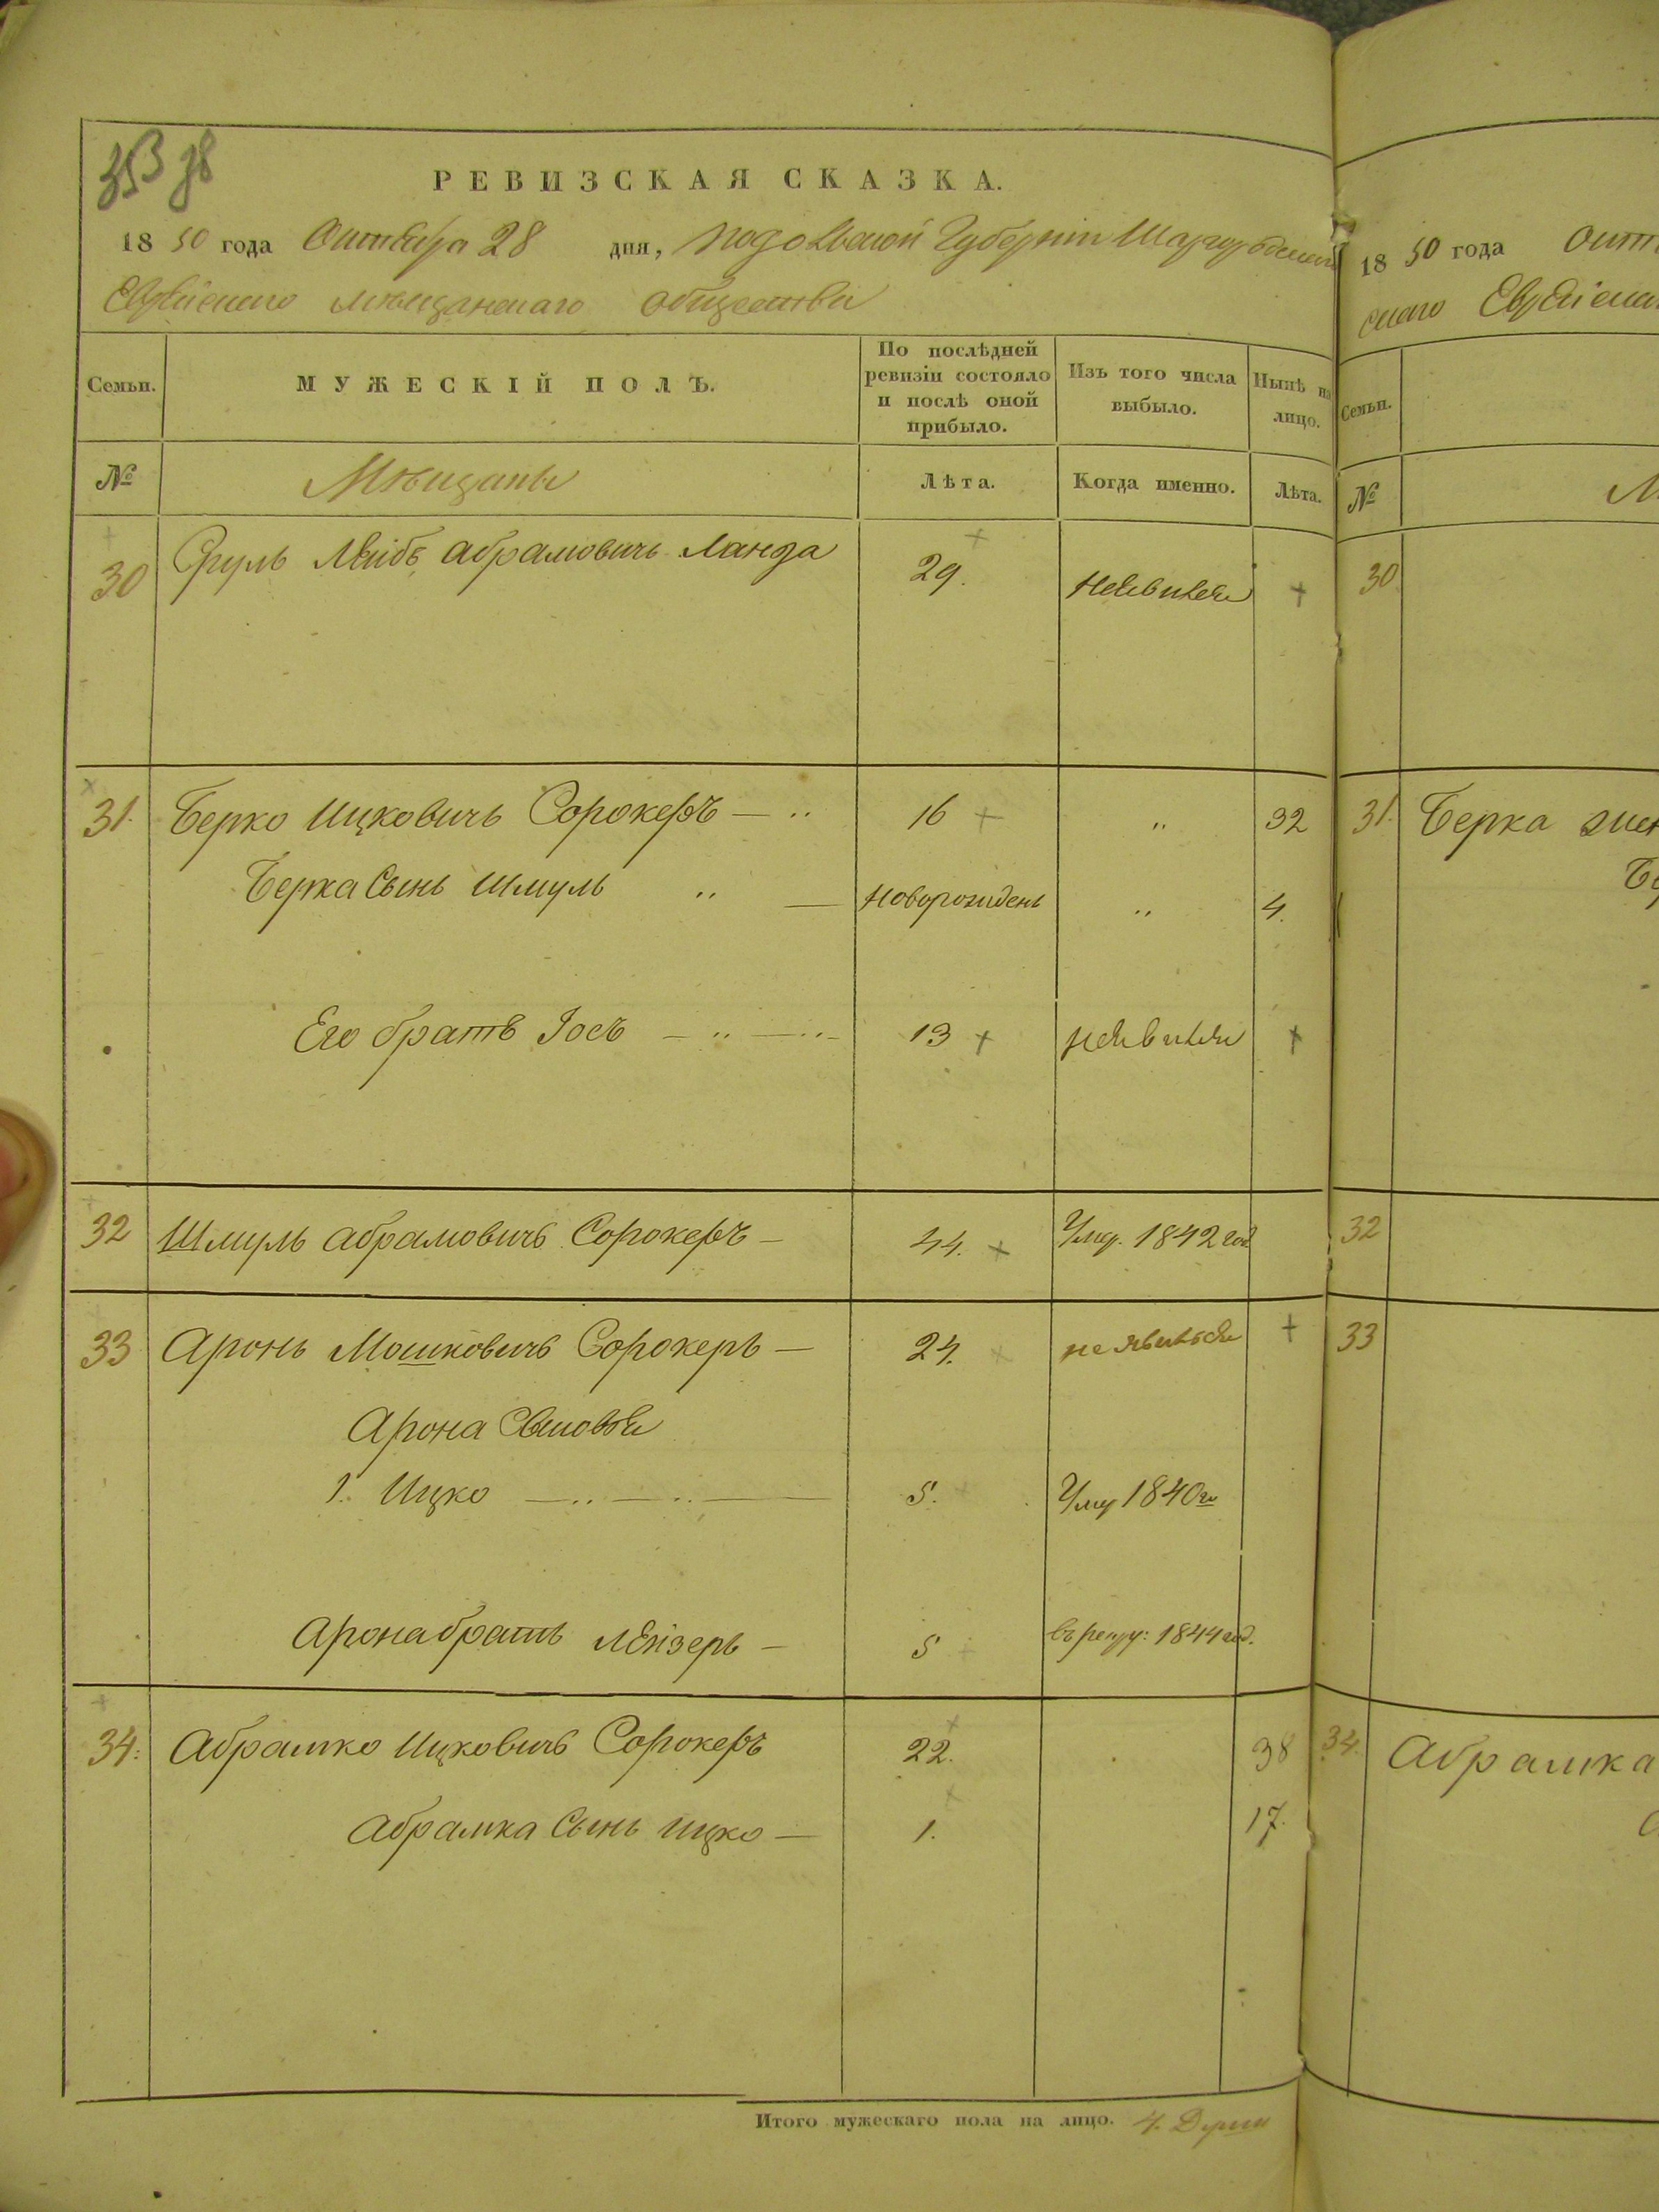 353 38
РЕВИЗСКАЯ СКАЗКА.
1850 года Октября 28 дня, Подольской Губерніи Шаргородскаго
Еврейскаго мѣщанскаго общества
Семьи.
МУЖЕСКІЙ ПОЛЪ.
По послѣдней ревизіи состояло и послѣ оной прибыло.
Изъ того числа выбыло.
Нынѣ на лицо.
№ Мѣщане Лѣта. Когда именно. Лѣта.
30 Сруль Лейбъ Абрамовичъ Ланда 29. неявился +
31. Берко Ицковичъ Сорокеръ — „ 16 + „ 32
Берка Сынъ Шмуль „ — новорожденъ „ 4.
Его братъ Іосъ — „ — „ 13 + неявился +
32 Шмуль Абрамовичъ Сорокеръ — 44. + Умер. 1842 год
33 Аронъ Мошковичъ Сорокеръ — 24. + не явился +
Арона Сыновья
1. Ицко — „ — „ — 5. Уме 1840го
Арона братъ Лейзеръ — 5 въ рекру: 1844 год.
34: Абрамко Ицковичъ Сорокеръ 22. 38
Абрамка Сынъ Ицко — 1. 17.
Итого мужескаго пола на лицо. 4. Души
1850 года
скаго
Семьи.
№
30
31. Берка
32
33
34. Абрамка